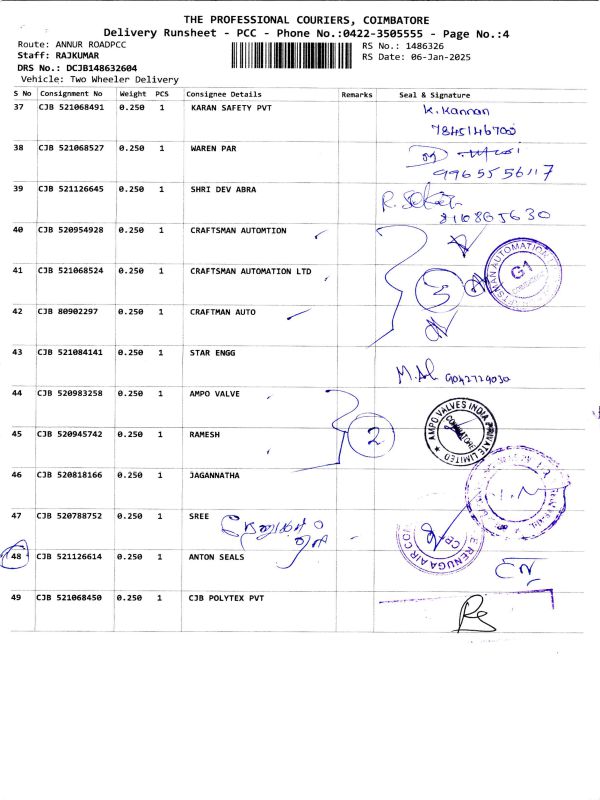 THE PROFESSIONAL COURIERS, COIMBATORE
Delivery Runsheet - PCC - Phone No.:0422-3505555 - Page No.:4
Route: ANNUR ROADPCC
RS No.: 1486326
Staff: RAJKUMAR
RS Date: 06-Jan-2025
DRS No.: DCJB148632604
Vehicle: Two Wheeler Delivery
S No Consignment No Weight PCS Consignee Details Remarks Seal & Signature
37 CJB 521068491 0.250 1 KARAN SAFETY PVT K. Kannan
7845146700
38 CJB 521068527 0.250 1 WAREN PAR
9965556117
39 CJB 521126645 0.250 1 SHRI DEV ABRA
8110865630
40 CJB 520954928 0.250 1 CRAFTSMAN AUTOMTION
41 CJB 521068524 0.250 1 CRAFTSMAN AUTOMATION LTD 3 G1
42 CJB 80902297 0.250 1 CRAFTMAN AUTO
43 CJB 521084141 0.250 1 STAR ENGG
9042729030
44 CJB 520983258 0.250 1 AMPO VALVE
AMPO VALVES INDIA PRIVATE LIMITED
COIMBATORE
45 CJB 520945742 0.250 1 RAMESH 2
46 CJB 520818166 0.250 1 JAGANNATHA
47 CJB 520788752 0.250 1 SREE
48 CJB 521126614 0.250 1 ANTON SEALS
49 CJB 521068450 0.250 1 CJB POLYTEX PVT